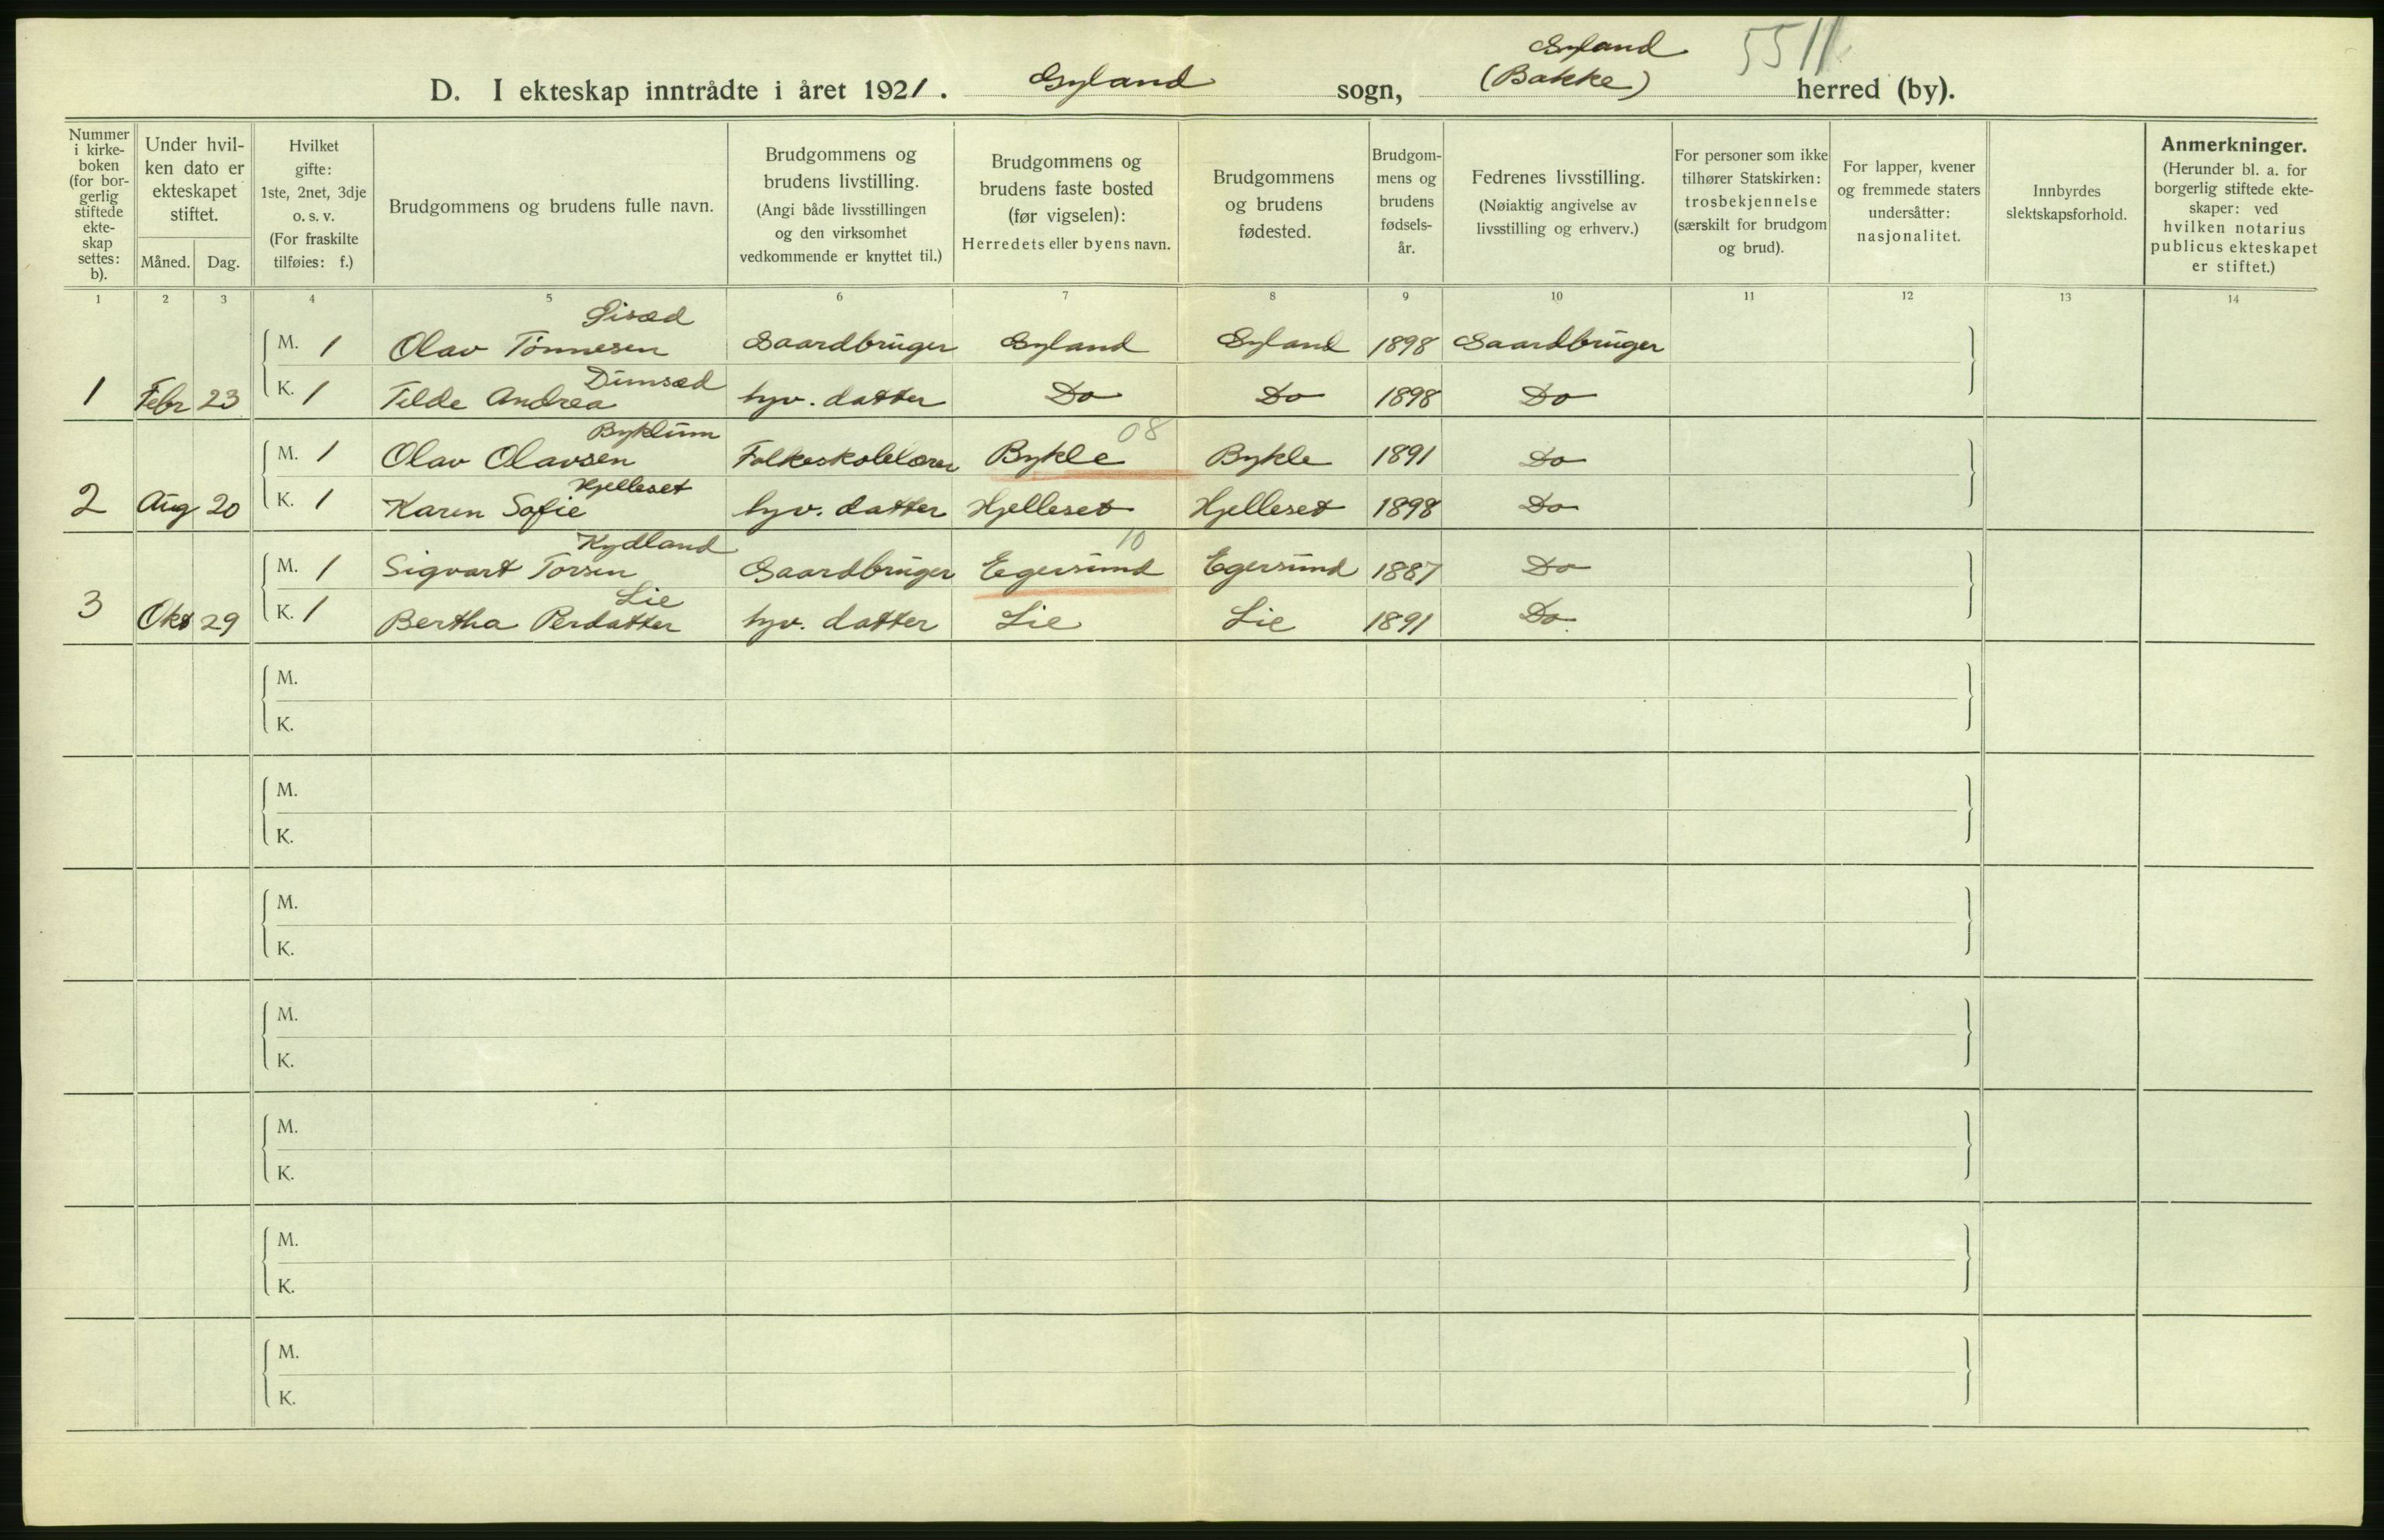 D. I ekteskap inntrådte i året 1921. Gyland sogn, Gyland (Bakke) herred (by).
5511
Nummer i kirke-boken (for bor-gerlig stiftede ekte-skap settes: b).
Under hvil-ken dato er ekteskapet stiftet.
Måned. Dag.
Hvilket gifte: 1ste, 2net, 3dje o. s. v. (For fraskilte tilføies: f.)
Brudgommens og brudens fulle navn.
Brudgommens og brudens livstilling. (Angi både livsstillingen og den virksomhet vedkommende er knyttet til.)
Brudgommens og brudens faste bosted (før vigselen): Herredets eller byens navn.
Brudgommens og brudens fødested.
Brudgom-mens og brudens fødsels-år.
Fedrenes livsstilling. (Nøiaktig angivelse av livsstilling og erhverv.)
For personer som ikke tilhører Statskirken: trosbekjennelse (særskilt for brudgom og brud).
For lapper, kvener og fremmede staters undersåtter: nasjonalitet.
Innbyrdes slektskapsforhold.
Anmerkninger. (Herunder bl. a. for borgerlig stiftede ekte-skaper: ved hvilken notarius publicus ekteskapet er stiftet.)
1 2 3 4 5 6 7 8 9 10 11 12 13 14
M. 1 Olav Tønnesen Gaardbruger Gyland Gyland 1898 Gaardbruger
1 Febr 23 K. 1 Tilde Andrea Dunsæd hjv. datter Do Do 1898 Do
M. 1 Olav Olavsen Byklum Folkeskolelærer Bykle 08 Bykle 1891 Do
2 Aug 20 K. 1 Karen Sofie Hjelleset hjv. datter Hjelleset Hjelleset 1898 Do
M. 1 Sigvart Torsen Kydland Gaardbruger Egersund 10 Egersund 1887 Do
3 Okt 29 K. 1 Bertha Perdatter Lie hjv. datter Lie Lie 1891 Do
M.
K.
M.
K.
M.
K.
M.
K.
M.
K.
M.
K.
M.
K.